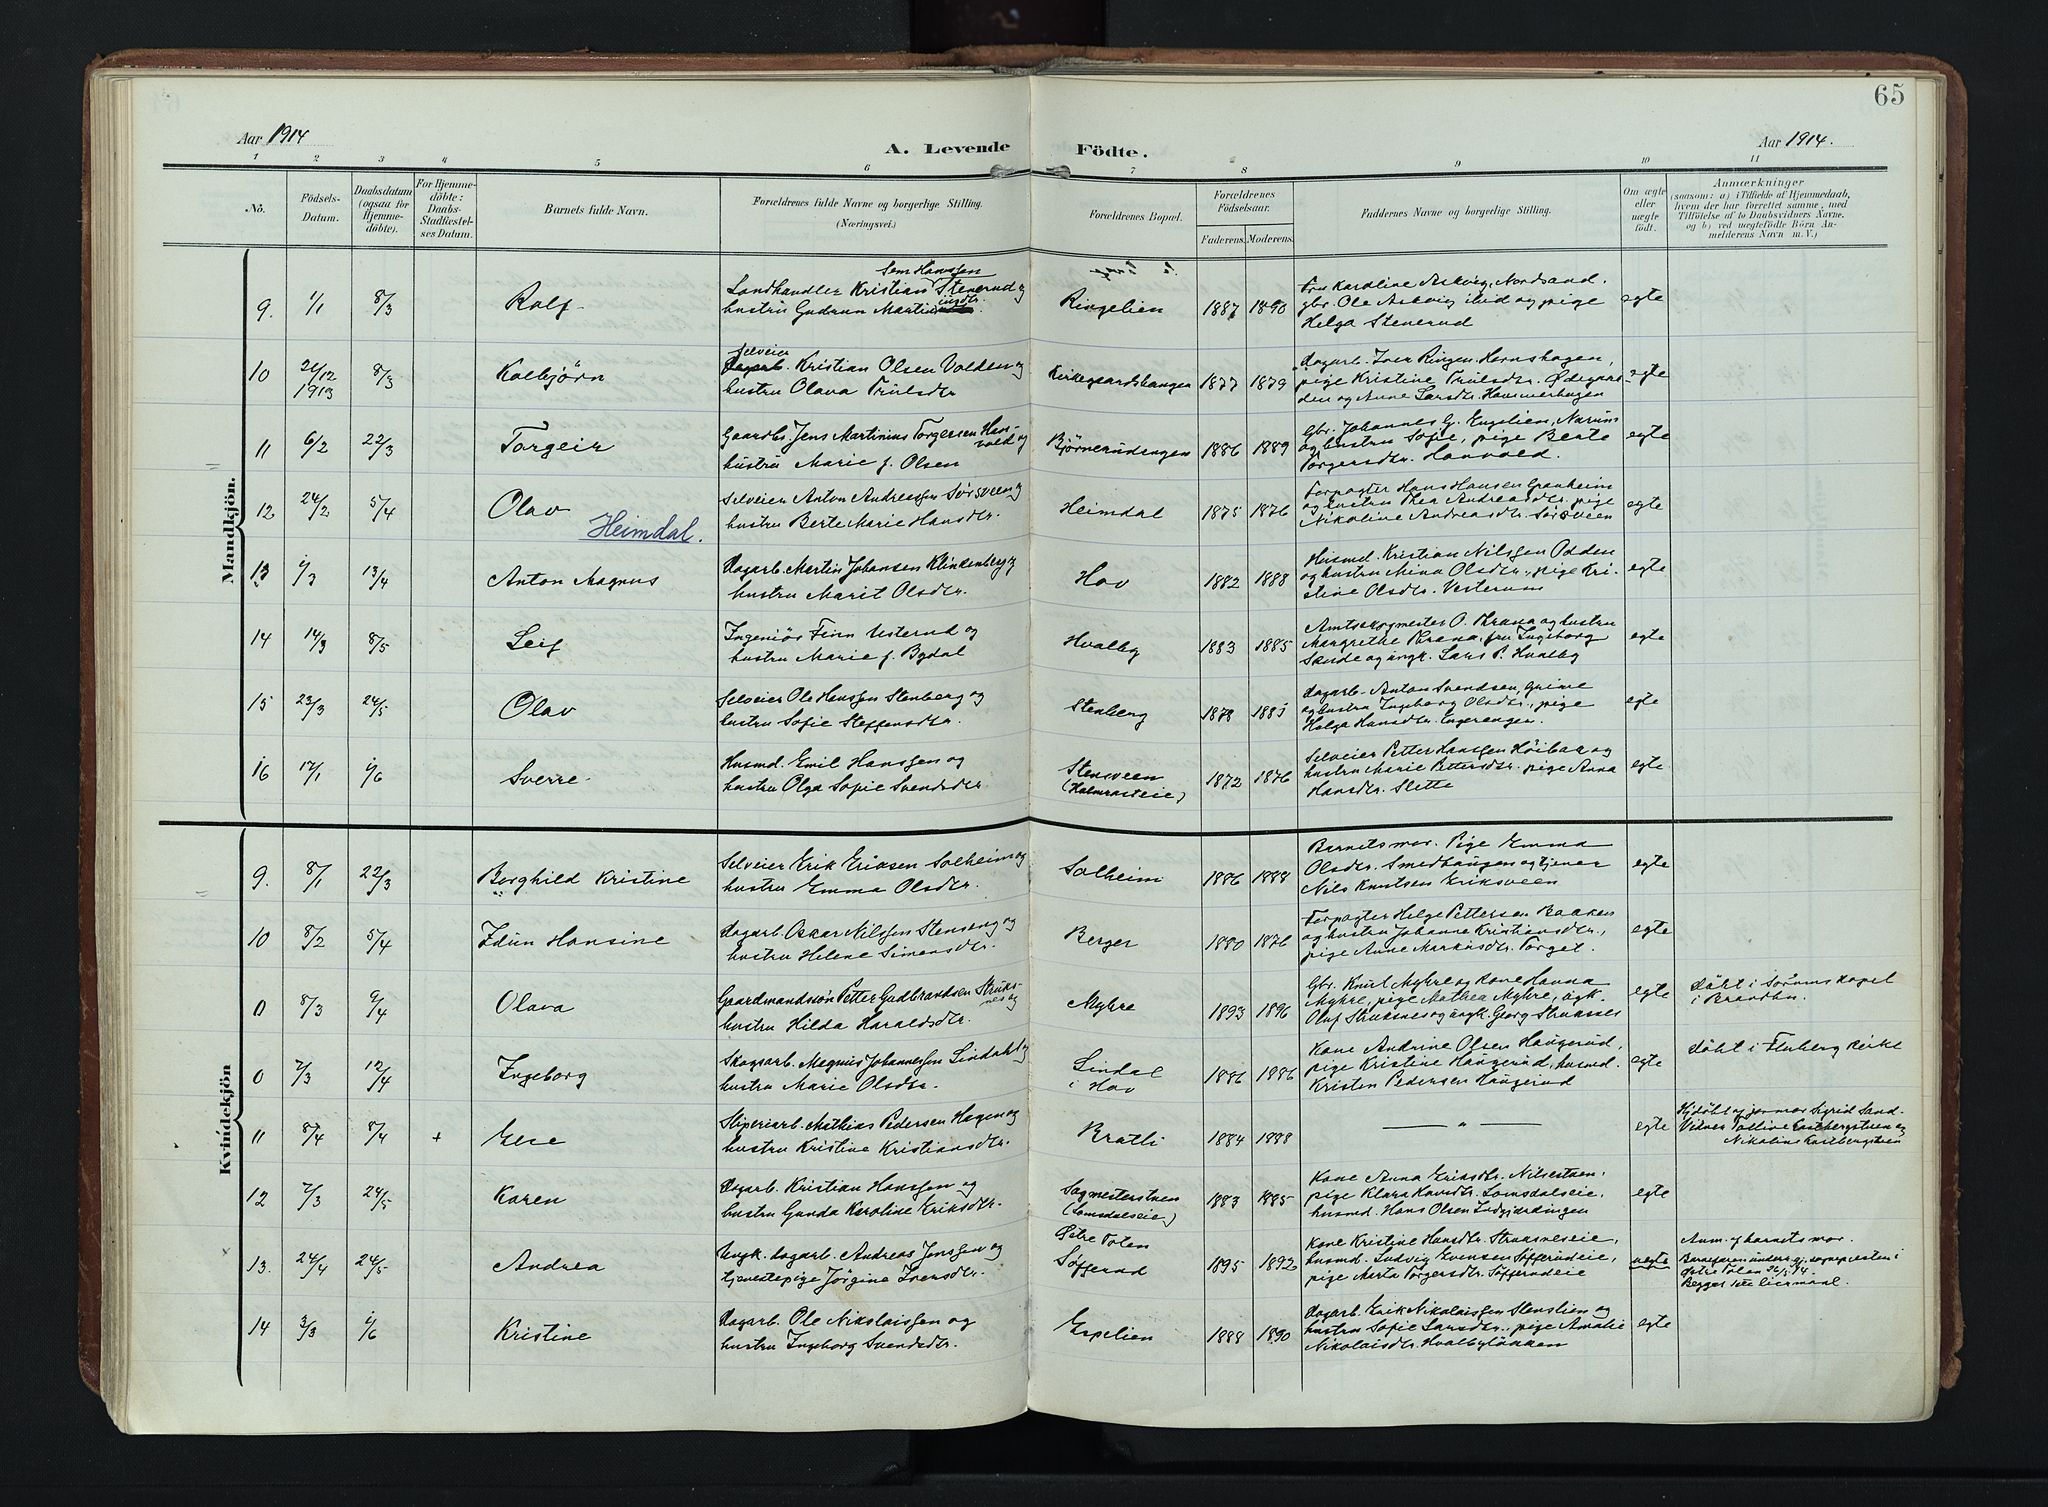 65
Aar 1914
A. Levende Födte.
Aar 1914.
1 2 3 4 5 6 7 8 9 10 11
No.
Födsels-Datum.
Daabsdatum (ogsaa for Hjemme-döbte).
For Hjemme-döbte: Daabs-Stadfæstel-ses Datum.
Barnets fulde Navn.
Forældrenes fulde Navne og borgerlige Stilling.
(Næringsvei.)
Forældrenes Bopæl.
Forældrenes Födselsaar.
Faderens. Moderens.
Faddernes Navne og borgerlige Stilling.
Om ægte eller uægte födt.
Anmærkninger
(saasom: a) i Tilfælde af Hjemmedaab, hvem der har forrettet samme, med Tilföielse af to Daabsvidners Navne, og b) ved uægtefödte Börn Anmelderens Navn m. V.)
Mandkjön.
9. 1/1 8/3 Rolf
Sem Hanssen
Landhandler Kristian Stenerud og
hustru Gudrun Martinusdtr.
Ringelien 1887 1890
Fru Karoline Askvig, Nordsand,
gbr. Ole Askvig ibid og pige
Helga Stenerud
egte
10 21/12 1913 8/3 Kolbjørn
Selveier
Kristian Olsen Volden og
hustru Olava Trulsdtr
Kirkegaardshaugen 1877 1879
Dagarb. Iver Ringen, Hernshagen,
pige Kristine Trulsdtr. Ødegaar-
den og Anne Larsdtr. Hammerhagen
egte
11 6/2 22/3 Torgeir
Gaardbr. Jens Martinius Torgersen Hau-
vold og
hustru Marie f. Olsen
Bjørnerudengen 1886 1889
Gbr. Johannes G. Engelien, Narum
og hustru Sofie, pige Berte
Torgersdtr. Hauvold.
egte
12 24/2 5/4 Olav
Heimdal.
Selveier Anton Andreassen Sørsveen og
hustru Berte Marie Hansdtr.
Heimdal 1875 1876
Forpagter Hans Hansen Granheim
og hustru Thea Andreasdtr. pige
Nikoline Andreasdtr. Sørsveen
egte
13 1/3 13/4 Anton Magnus
Dagarb. Martin Johansen Klinkenberg og
hustru Marit Olsdtr.
Hov 1882 1888
Husmd. Kristian Nilssen Odden
og hustru Mina Olsdtr., pige Kri-
stine Olsdtr. Vesterum
egte
14 14/3 8/5 Leif
Ingeniør Finn Usterud og
hustru Marie f. Bydal
Hvalby 1883 1885
Amtsskogmester O. Brana og hustru
Margrethe Brana, fru Ingeborg
Skude og ungk. Lars P. Hvalby
egte
15 23/3 24/5 Olav
Selveier Ole Hanssen Stenberg og
hustru Sofie Steffensdtr.
Stenberg 1878 1885
Dagarb. Anton Svendsen, Grime
og hustru Ingeborg Olsdtr., pige
Helga Hansdtr. Engerengen.
egte
16 17/1 1/6 Sverre
Husmd. Emil Hanssen og
hustru Olga Sofie Svendsdtr
Stensveen
(Halmrasteie) 1872 1876
Selveier Petter Hanssen Höibak og
hustru Marie Pettersdtr. pige Anna
Hansdtr. Slette
egte
Kvindekjön
9. 8/1 22/3 Borghild Kristine
Selveier Erik Eriksen Solheim og
hustru Emma Olsdtr.
Solheim 1886 1888
Barnets mor. Pige Emma
Olsdtr. Smedhaugen og tjener
Nils Knutsen Eriksveen
egte
10 8/2 5/4 Idun Hansine
Dagarb. Oskar Nilssen Stenseng og
hustru Helene Simensdtr.
Berger 1880 1876
Forpagter Helge Pettersen Bakken
og hustru Johanne Kristiansdtr.,
pige Anne Markusdtr. Torget.
egte
0 8/3 9/4 Olava
Gaardmandssøn Petter Gudbrandsen Struks-
nes og
hustru Hilda Haraldsdtr.
Myhre 1893 1896
Gbr. Knut Myhre og kone Hanna
Myhre, pige Mathea Myhre, ugk.
Oluf Struksnes og ungk. Georg Struksnes
egte
döbt i Sørums kapel
i Brandbu.
0 7/3 12/4 Ingeborg
Skogsarb. Magnus Johannessen Lindahl og
hustru Marie Olsdtr.
Lindal
i Hov 1886 1886
Kone Andrine Olsen Haugerud,
pige Kristine Haugerud, husmd.
Kristen Pedersen Haugerud
egte
döbt i Fluberg kirke
11 8/4 8/4 + Else
Sliperiarb. Mathias Pedersen Hagen og
hustru Kristine Kristiansdtr.
Bratli 1884 1888
— " —
egte
Hjdöbt af jormor Sigrid Sand-
Vidner Polline Kastbergstuen og
Nikoline Kastbergstuen
12 7/3 24/5 Karen
Dagarb. Kristian Hanssen og
hustru Gunda Karoline Eriksdtr.
Sagmesterstuen
(Lomsdalseie) 1883 1885
Kone Anna Eriksdtr. Nilsestuen,
pige Klara Knutsdtr. Lomsdalseie,
husmd. Hans Olsen Indgjerdingen
egte
13. 24/4 24/5 Andrea
Ungk. dagarb. Andreas Jenssen og
tjenestepige Jörgine Iversdtr.
Østre Toten
Søfferud 1895 1892
Kone Kristine Hansdtr. Struksneseie,
husmd. Ludvig Evensen Søfferudeie,
pige Marta Torgersdtr. Søfferudeie
uegte
Anm. af barnets mor.
Barnefaren underg. sogneprästen i
Østre Toten 26/5 14.
Begges 1ste leiermaal.
14 3/3 1/6 Kristine
Dagarb. Ole Nikolaissen og
hustru Ingeborg Svendsdtr.
Espelien 1888 1890
Dagarb. Erik Nikolaissen Stenslien og
hustru Sofie Larsdtr., pige Amalie
Nikolaisdtr. Hvalbyløkken
egte